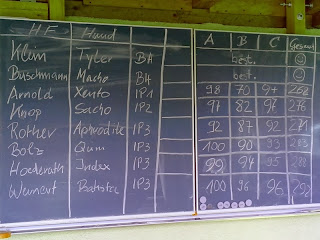 HF Hund A B C Gesamt
Klein Tyler BH bet.
Buschmann Macho BH bet.
Arnold Xento IP1 98 70 94 262
Knop Sacho IP2 97 82 97 276
Rother Aphrodite IP3 92 87 92 271
Bolz Qum IP3 100 90 93 283
Hoederath Index IP3 99 94 95 288
IP3 100 96 96 292